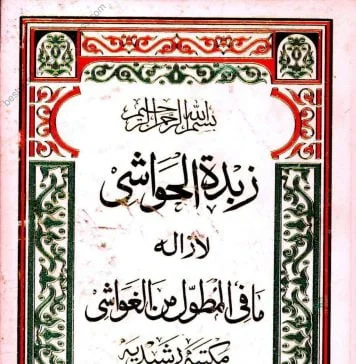 بسم الله الرحمن الرحيم
زبدة الحواشى
لازاله
ما فى المطول من الغواشى
مكتبة رشيديه